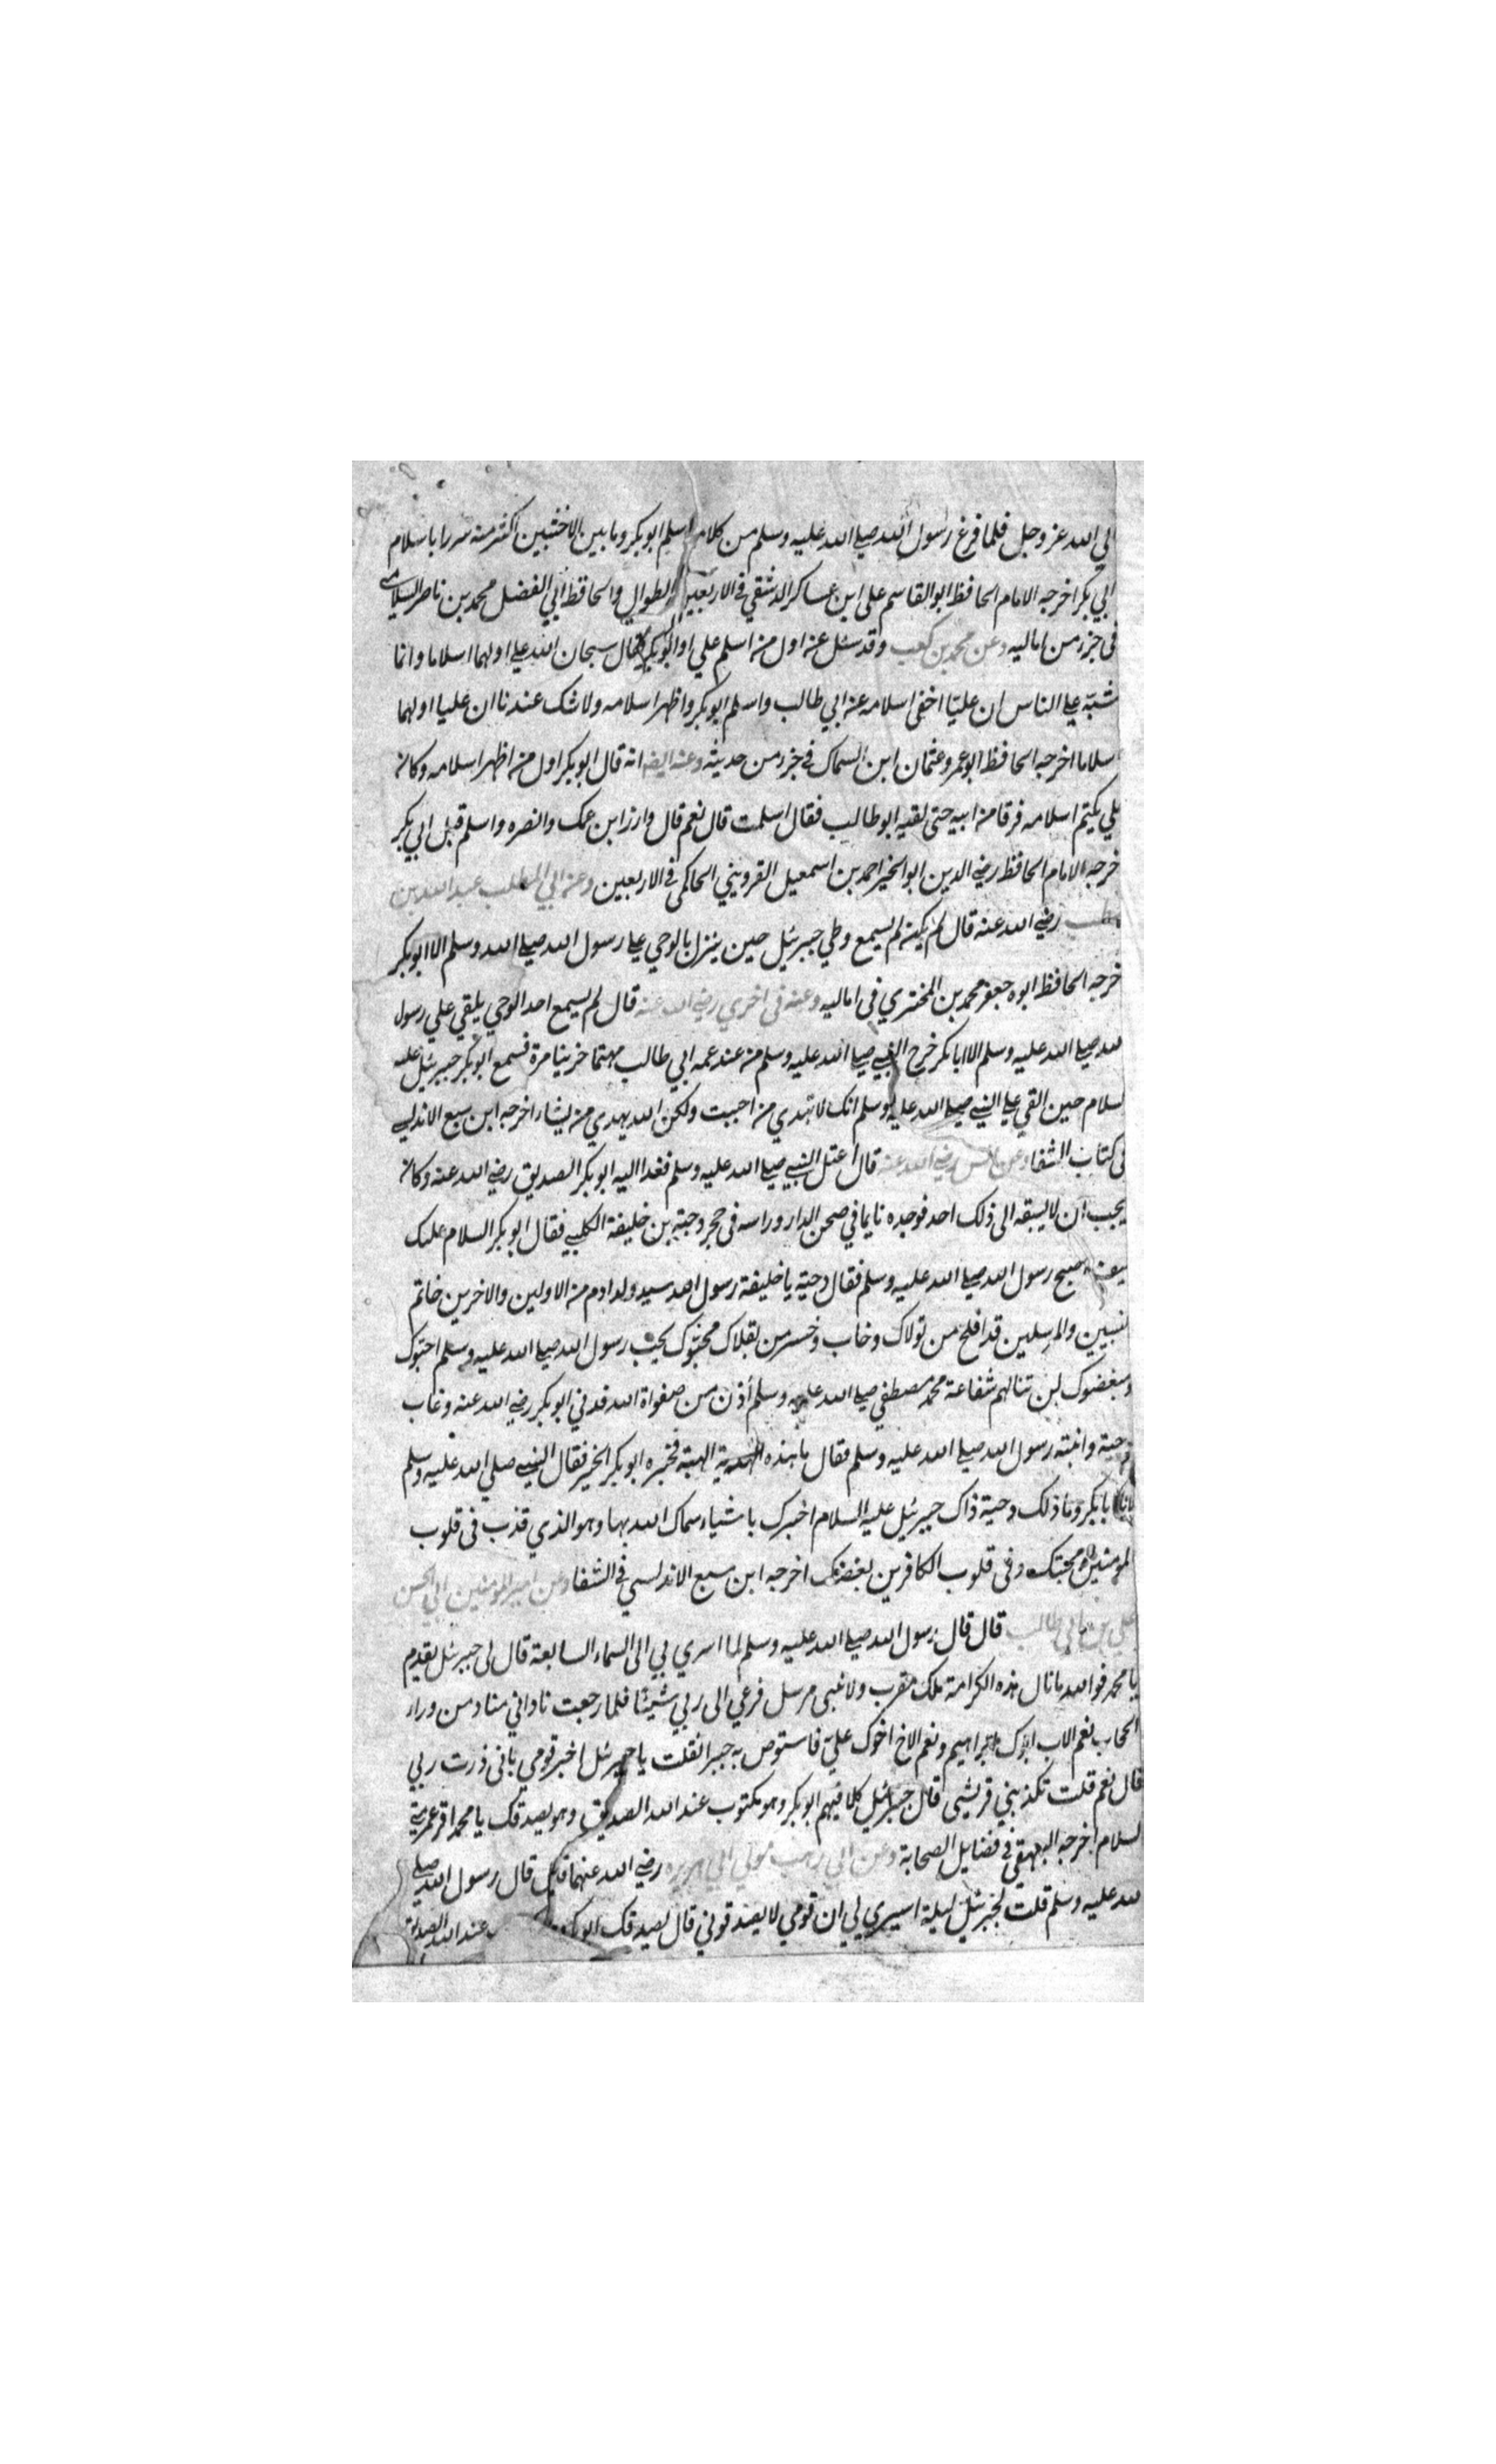 الي الله عز وجل فلما فرغ رسول الله صلي الله عليه وسلم من كلامه اسلم ابو بكر وما بين الاخشبين اكثر منه سررا باسلام
ابي بكر اخرجه الامام الحافظ ابو القاسم علي ابن عساكر الدمشقي في الاربعين الطوال والحافظ ابي الفضل محمد بن ناصر السلامي
في جزر من اماليه وعن محمد بن كعب وقد سئل عنه اول من اسلم علي او ابو بكر فقال سبحان الله علي اولهما اسلاما وانما
شبته علي الناس ان عليا اخفي اسلامه عن ابي طالب واسلم ابو بكر واظهر اسلامه ولا شك عندنا ان عليا اولهما
اسلاما اخرجه الحافظ ابو عمرو عثمان ابن السماك في جزر من حديثه وعنه ايضه انه قال ابو بكر اول من اظهر اسلامه وكان
علي يكتم اسلامه فرقا من ابيه حتي لقيه ابو طالب فقال اسلمت قال نعم قال وارز ابن عمك وانصره واسلم قبل ابي بكر
خرجه الامام الحافظ رضي الدين ابو الخير احمد بن اسمعيل القرويني الحاكمي في الاربعين وعن ابي المطلب عبد الله بن
رضي الله عنه قال لم يكن لم يسمع وطي جبرئيل حين ينزل بالوحي علي رسول الله صلي الله وسلم الا ابو بكر
خرجه الحافظ ابوه جعفر محمد بن المختري في اماليه وعنه في اخري رضي الله عنه قال لم يسمع احد الوحي يلقي علي رسول
لله صلي الله عليه وسلم الا ابا بكر خرج النبي صلي الله عليه وسلم من عند عمه ابي طالب مهتما حزينا مرة فسمع ابو بكر جبرئيل عليه
لسلام حين القي علي النبي صلي الله عليه وسلم انك لا تهدي من احببت ولكن الله يهدي من يشاء اخرجه ابن سبع الاندلسي
في كتاب الشفا وعن انس رضي الله عنه قال اعتل النبي صلي الله عليه وسلم فغدا اليه ابو بكر الصديق رضي الله عنه وكان
يحب ان لا يسبقه الي ذلك احد فوجده نايما في صحن الدار وراسه في حجر وحية بن خليفة الكلبي فقال ابو بكر السلام عليك
اصبح رسول الله صلي الله عليه وسلم فقال دحية يا خليفة رسول الله سيد ولد ادم من الاولين والاخرين خاتم
لنبيين والمرسلين قد افلح من تولاك وخاب وخسر من بقلاك محبوك بحب رسول الله صلي الله عليه وسلم احبوك
ومبغضوك لن تنالهم شفاعة محمد مصطفي صلي الله عليه وسلم أذن من صفواة الله فدني ابو بكر رضي الله عنه وغاب
دحية وانتبه رسول الله صلي الله عليه وسلم فقال ما هذه الهبة فخبره ابو بكر الخبر فقال النبي صلي الله عليه وسلم
يا ابا بكر وما ذلك دحية ذاك جبرئيل عليه السلام اخبرك باشياء سماك الله بها وهو الذي قذب في قلوب
المومنين محبتك وفي قلوب الكافرين بغضك اخرجه ابن سبع الاندلسي في الشفا وعن امير المومنين ابي الحسن
علي بن ابي طالب قال قال رسول الله صلي الله عليه وسلم لما اسري بي الي السماء السابعة قال لي جبرئيل تقدم
يا محمد فو الله ما نال هذه الكرامة ملك مقرب ولا نبي مرسل فرعي الي ربي شيئا فلما رجعت ناداني مناد من وراء
الحجاب نعم الاب ابوك ابراهيم ونعم الاخ اخوك علي فاستوص به خيرا فقلت يا جبرئيل اخبر قومي باني زرت ربي
قال نعم قلت تكذبني قريشي قال جبرئيل كلا فيهم ابو بكر وهو مكتوب عند الله الصديق وهو يصدقك يا محمد اقر عمر مني
لسلام اخرجه البيهقي في فضايل الصحابة وعن ابي وهب مولي ابي هريره رضي الله عنهما قال قال رسول الله صلي
لله عليه وسلم قلت لجبرئيل ليلة اسيري لي ان قومي لا يصدقوني قال يصدقك ابو بكر عند الله الصديق